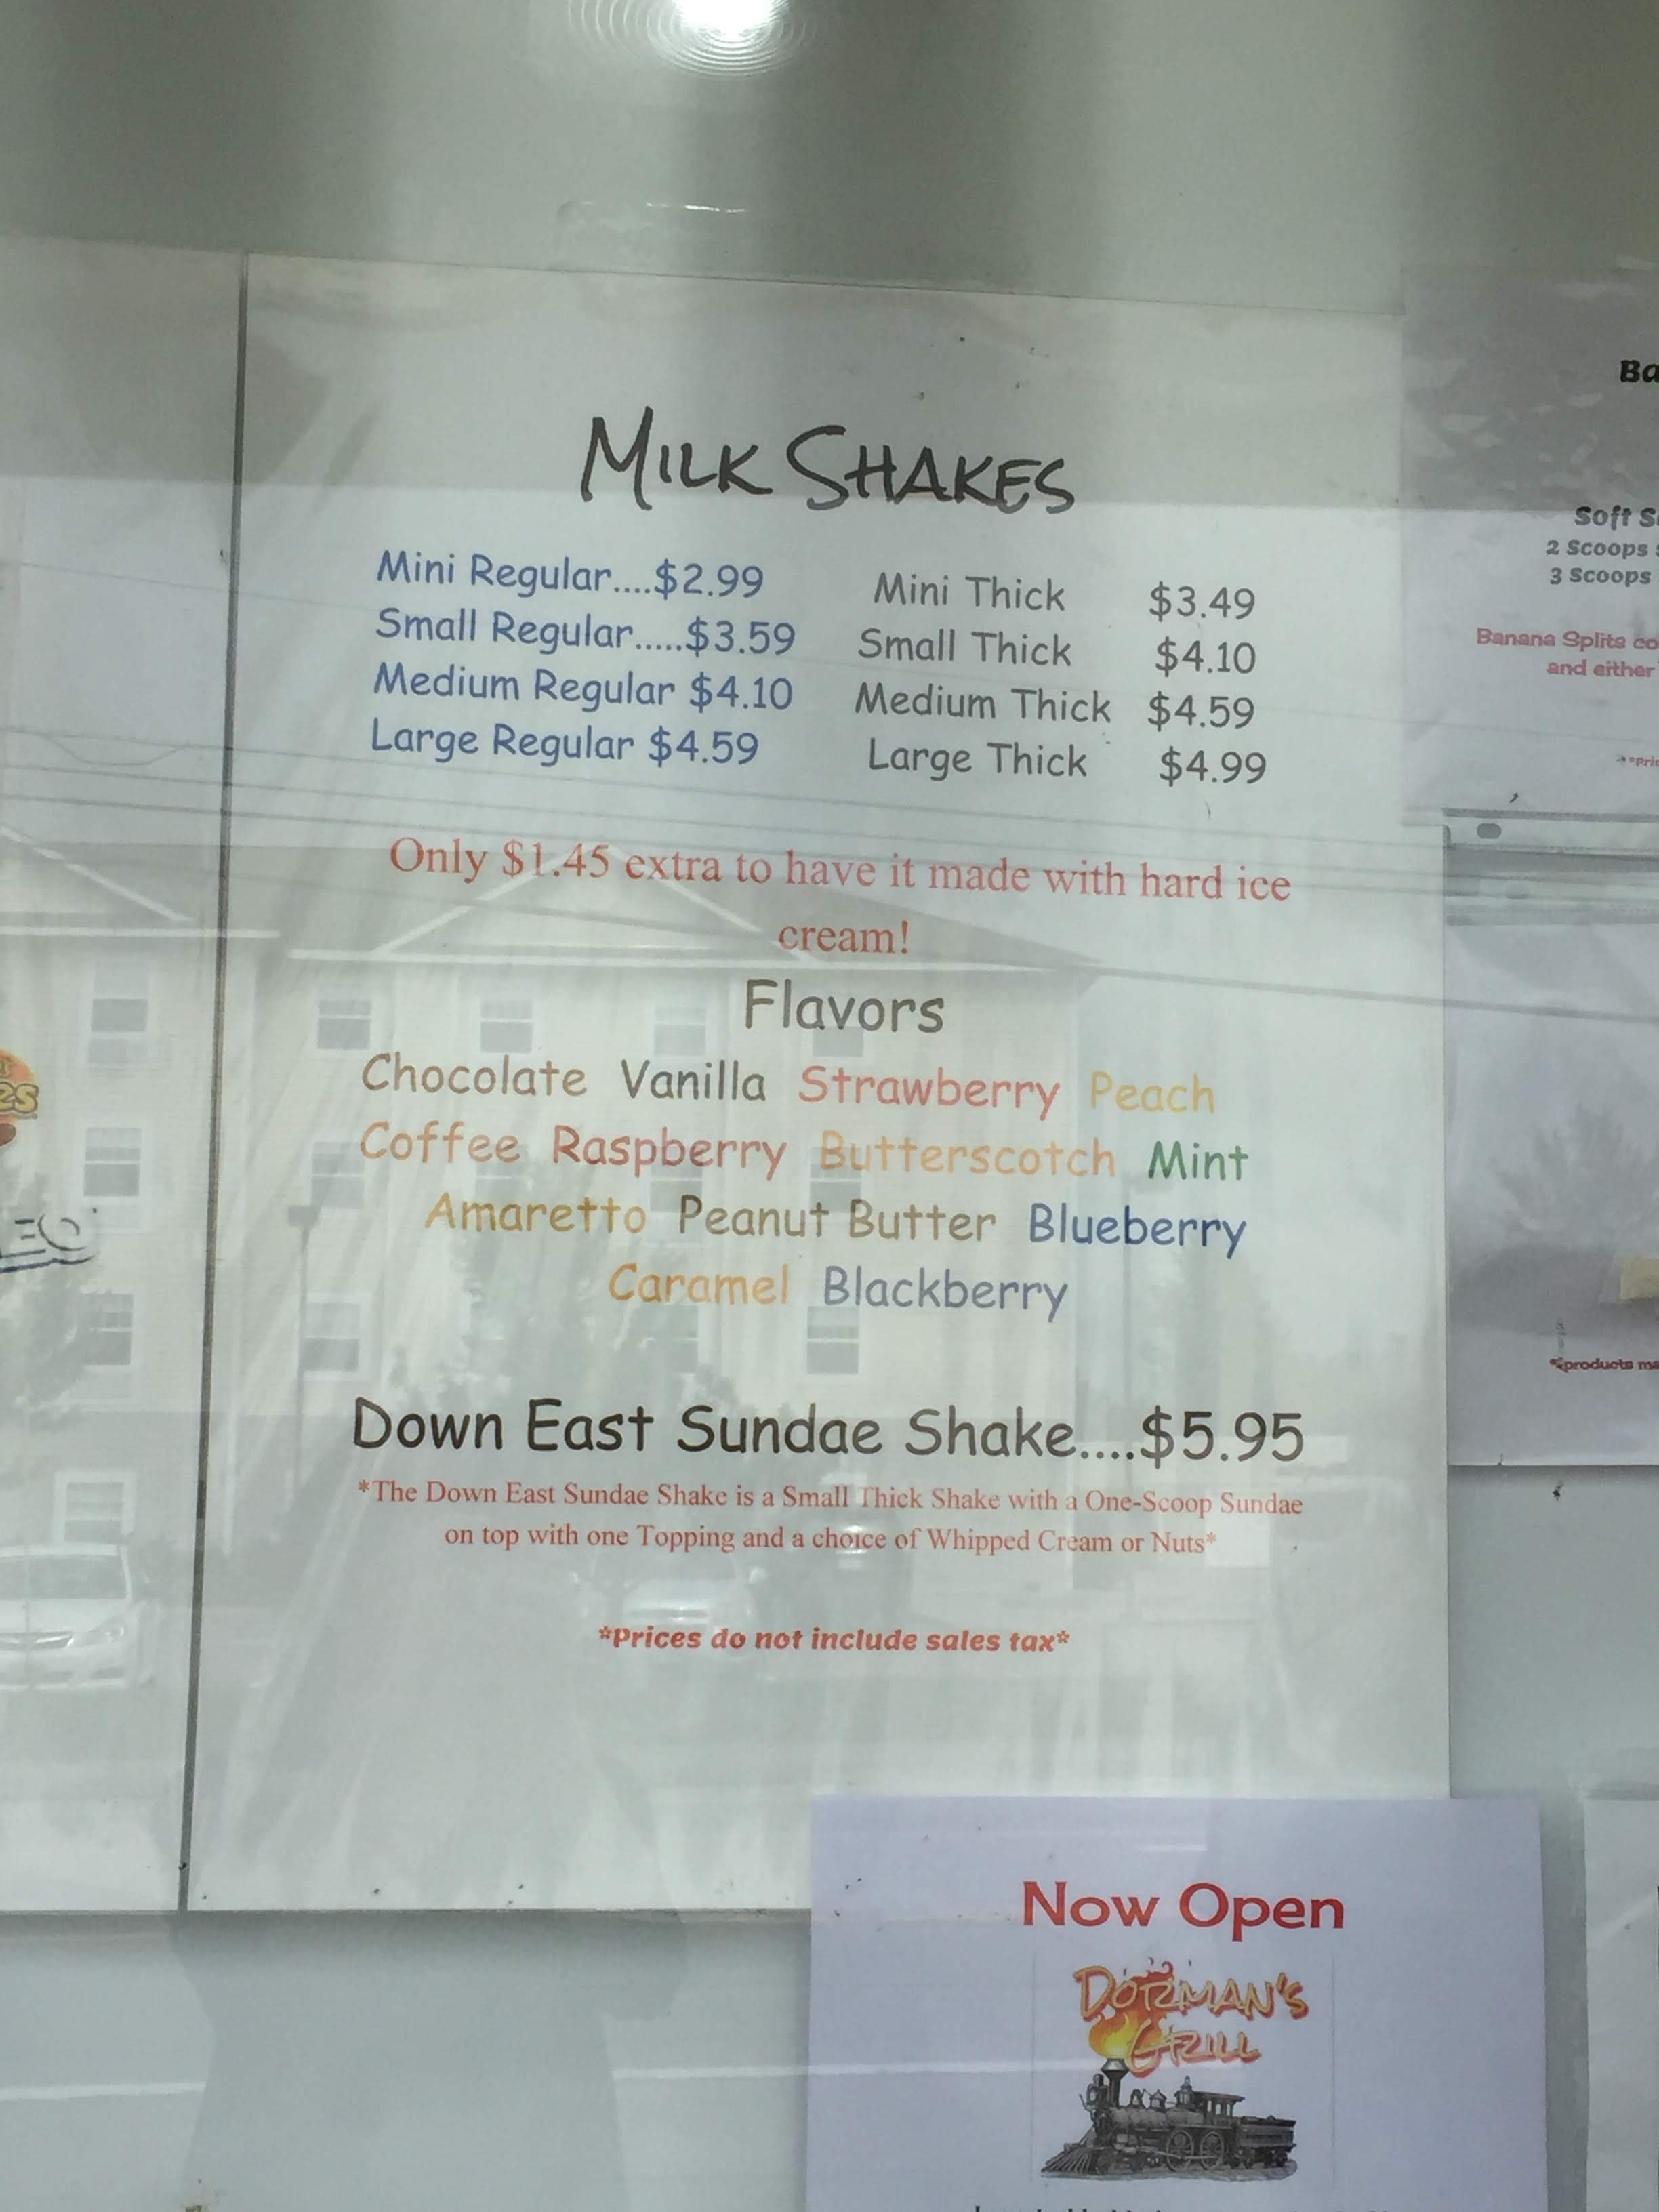 MILK SHAKES
Mini Regular....$2.99
Small Regular.....$3.59
Medium Regular $4.10
Large Regular $4.59
Mini Thick $3.49
Small Thick $4.10
Medium Thick $4.59
Large Thick $4.99
Only $1.45 extra to have it made with hard ice
cream!
Flavors
Chocolate Vanilla Strawberry Peach
Coffee Raspberry Butterscotch Mint
Amaretto Peanut Butter Blueberry
Caramel Blackberry
Down East Sundae Shake....$5.95
*The Down East Sundae Shake is a Small Thick Shake with a One-Scoop Sundae
on top with one Topping and a choice of Whipped Cream or Nuts*
*Prices do not include sales tax*
Soft
2 Scoops
3 Scoops
Banana Splits
and either
*products
Now Open
DORMAN'S
GRILL